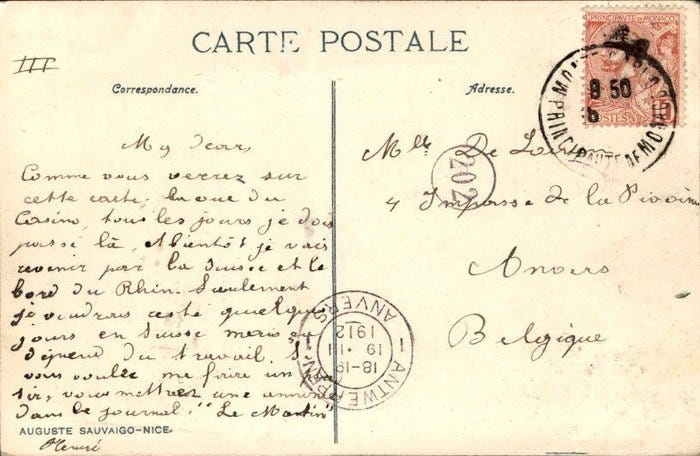 CARTE POSTALE
III
Correspondance.
Adresse.
PRINCIPAUTÉ DE MONACO
POSTES
MONTE-CARLO
8 50
PRINCIPAUTE DE MONACO
My dear,
Comme vous verrez sur
cette carte, la vue du
Casino, tous les jours je dois
passé là, Abientôt je vais
revenir par la Suisse et le
bord du Rhin. Seulement
je voudrais resté quelques
jours en Suisse mais ça
dépend du travail. Si
vous voulez me faire un
sir, vous mettrez une annonce
dans le journal "Le Martin"
AUGUSTE SAUVAIGO-NICE.
Mlle De
4 Impasse de la
Anvers
Belgique
202
ANTWERPEN
18-19
19 III
1912
ANVERS